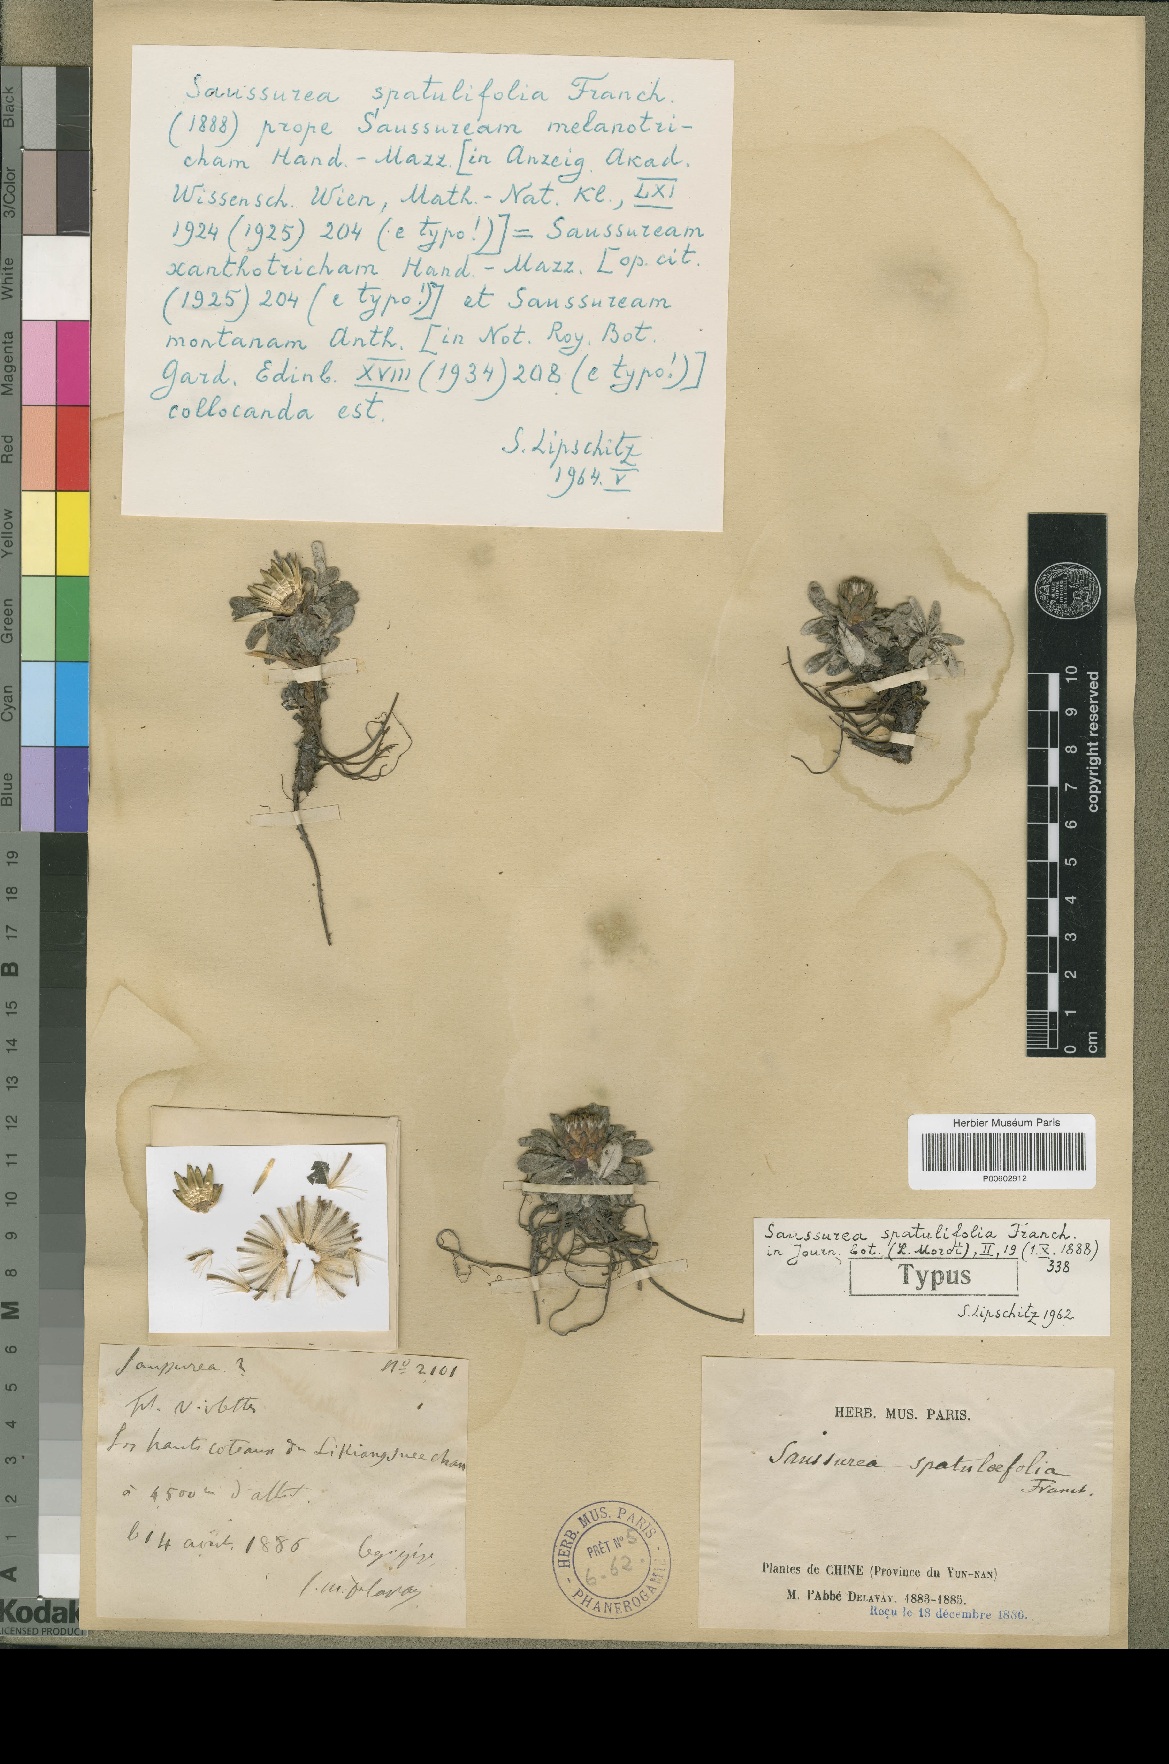 Saussurea spatulifolia Franch.
(1888) prope Saussuream melanotri-
cham Hand.-Mazz. [in Anzeig. Akad.
Wissensch. Wien, Math.-Nat. Kl., LXI
1924 (1925) 204 (e typo!)] = Saussuream
xanthotricham Hand.-Mazz. [op. cit.
(1925) 204 (e typo!)] et Saussuream
montanam Anth. [in Not. Roy. Bot.
Gard. Edinb. XVIII (1934) 208 (e typo!)]
collocanda est.
S. Lipschitz
1964. V
Black
3/Color
White
Magenta
Red
Yellow
Green
Cyan
Blue
19
18
17
B
15
14
13
12
11
10
9
8
M
6
5
4
3
2
1
A
Kodak
LICENSED PRODUCT
10
9
8
7
6
5
4
3
2
1
0
cm
copyright reserved
Herbier Muséum Paris
P00602912
Saussurea spatulifolia Franch.
in Journ. bot. (L. Morot), II, 19 (1.X.1888)
338
Typus
S. Lipschitz 1962
Saussurea ? No 2101
fl. violettes
Les hauts coteaux du Likiang
à 4500m d'altit.
le 14 août 1886
J. M. Delavay
HERB. MUS. PARIS
PRÊT No 5
6.62.
PHANEROGAMIE
HERB. MUS. PARIS.
Saussurea spatulaefolia
Franch.
Plantes de CHINE (Province du YUN-NAN)
M. l'Abbé DELAVAY. 1883-1885.
Reçu le 18 décembre 1886.